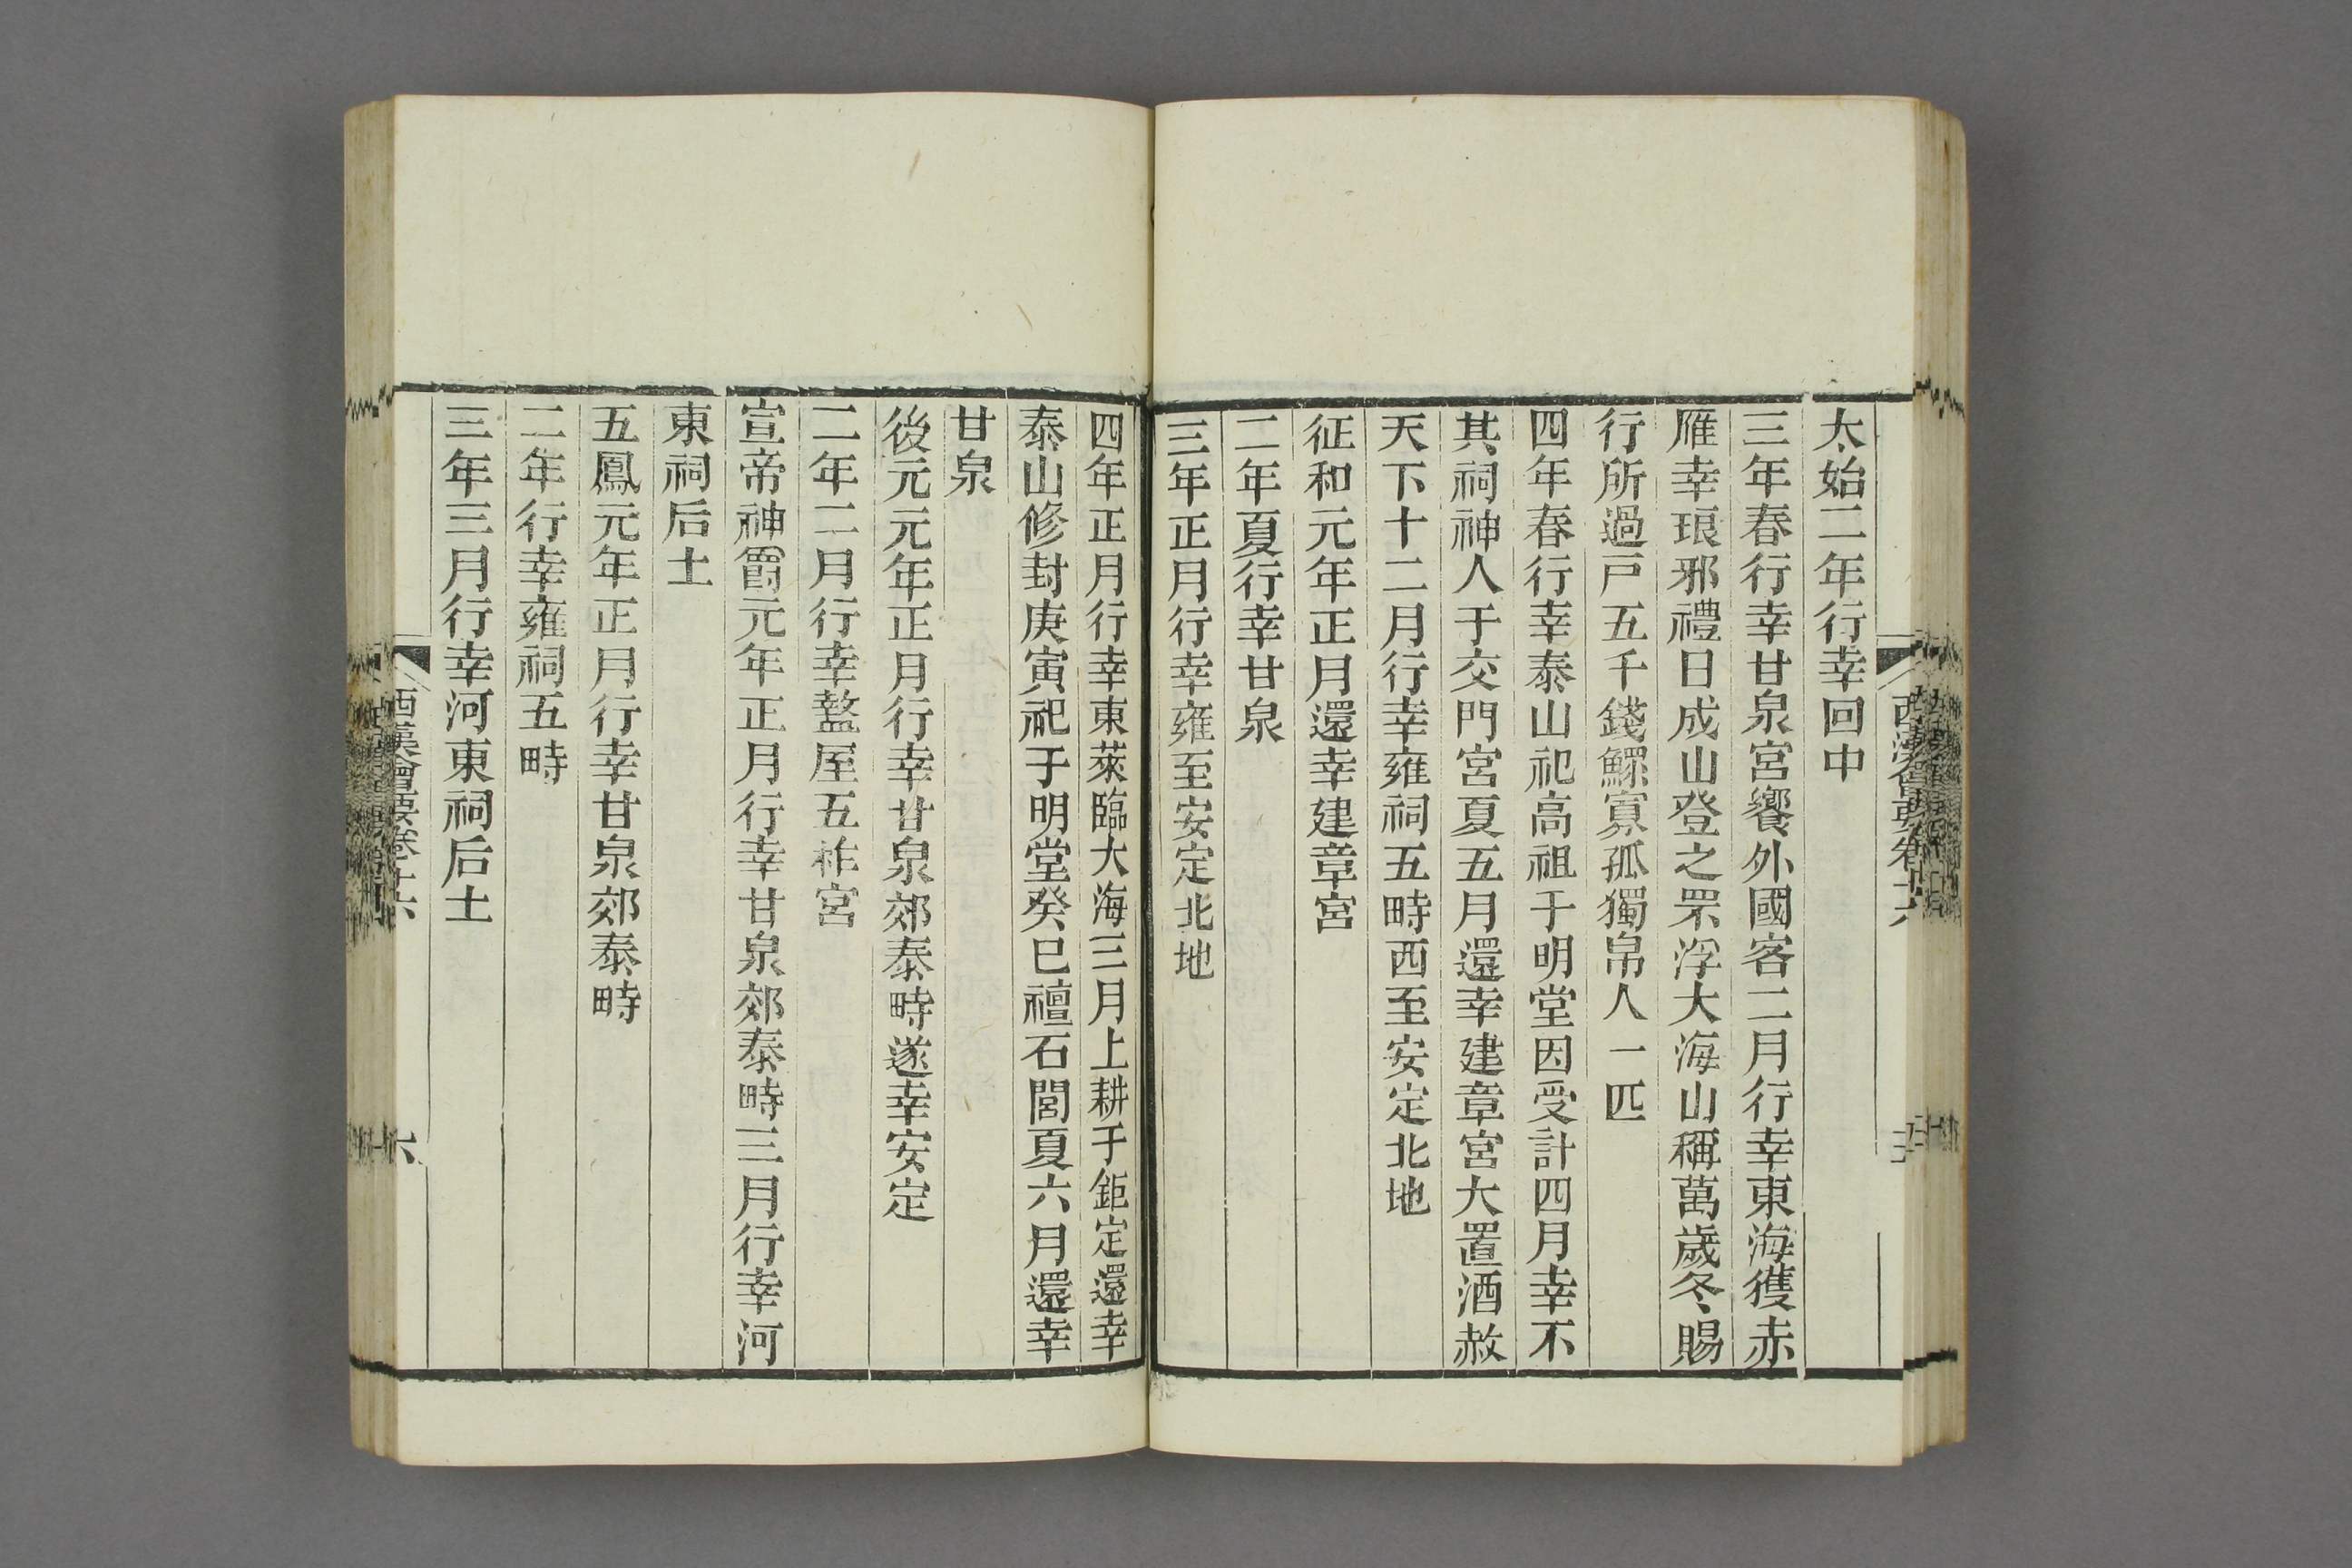 太始二年行幸回中
三年春行幸甘泉宮饗外國客二月行幸東海獲赤
雁幸琅邪禮日成山登之罘浮大海山稱萬歲冬賜
行所過戸五千錢鰥寡孤獨帛人一匹
四年春行幸泰山祀高祖于明堂因受計四月幸不
其祠神人于交門宮夏五月還幸建章宮大置酒赦
天下十二月行幸雍祠五畤西至安定北地
征和元年正月還幸建章宮
二年夏行幸甘泉
三年正月行幸雍至安定北地
四年正月行幸東萊臨大海三月上耕于鉅定還幸
泰山修封庚寅祀于明堂癸巳禪石閭夏六月還幸
甘泉
後元元年正月行幸甘泉郊泰畤遂幸安定
二年二月行幸盩厔五祚宮
宣帝神爵元年正月行幸甘泉郊泰畤三月行幸河
東祠后土
五鳳元年正月行幸甘泉郊泰畤
二年行幸雍祠五畤
三年三月行幸河東祠后土
西漢會要卷十六
六